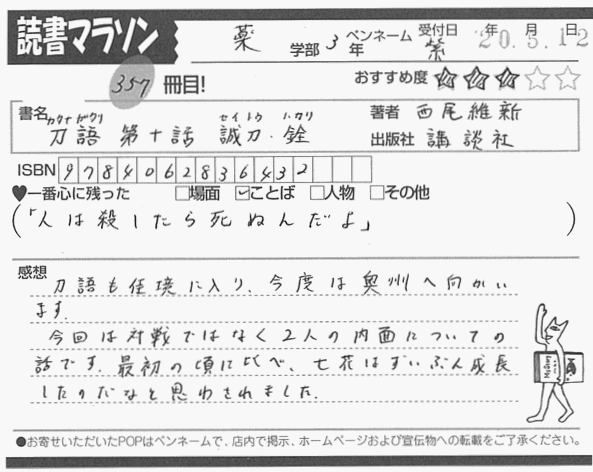 読書マラソン
薬 学部 3年 ペンネーム 紫 受付日 年 月 日 20.5.12
357 冊目! おすすめ度 ★★★☆☆
書名 カタナガタリ セイトウ ハカリ
刀語 第十話 誠刀・銓
著者 西尾維新
出版社 講談社
ISBN 9784062836432
♥一番心に残った □場面 ☑ことば □人物 □その他
(「人は殺したら死ぬんだよ」)
感想
刀語も佳境に入り、今度は奥州へ向かい
ます.
今回は対戦ではなく2人の内面についての
話です.最初の頃に比べ、七花はずいぶん成長
したのだなと思わされました.
●お寄せいただいたPOPはペンネームで、店内で掲示、ホームページおよび宣伝物への転載をご了承ください。